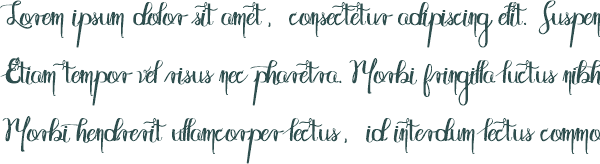 Lorem ipsum dolor sit amet, consectetur adipiscing elit. Suspen
Etiam tempor vel risus nec pharetra. Morbi fringilla luctus nibh
Morbi hendrerit ullamcorper lectus, id interdum lectus commo